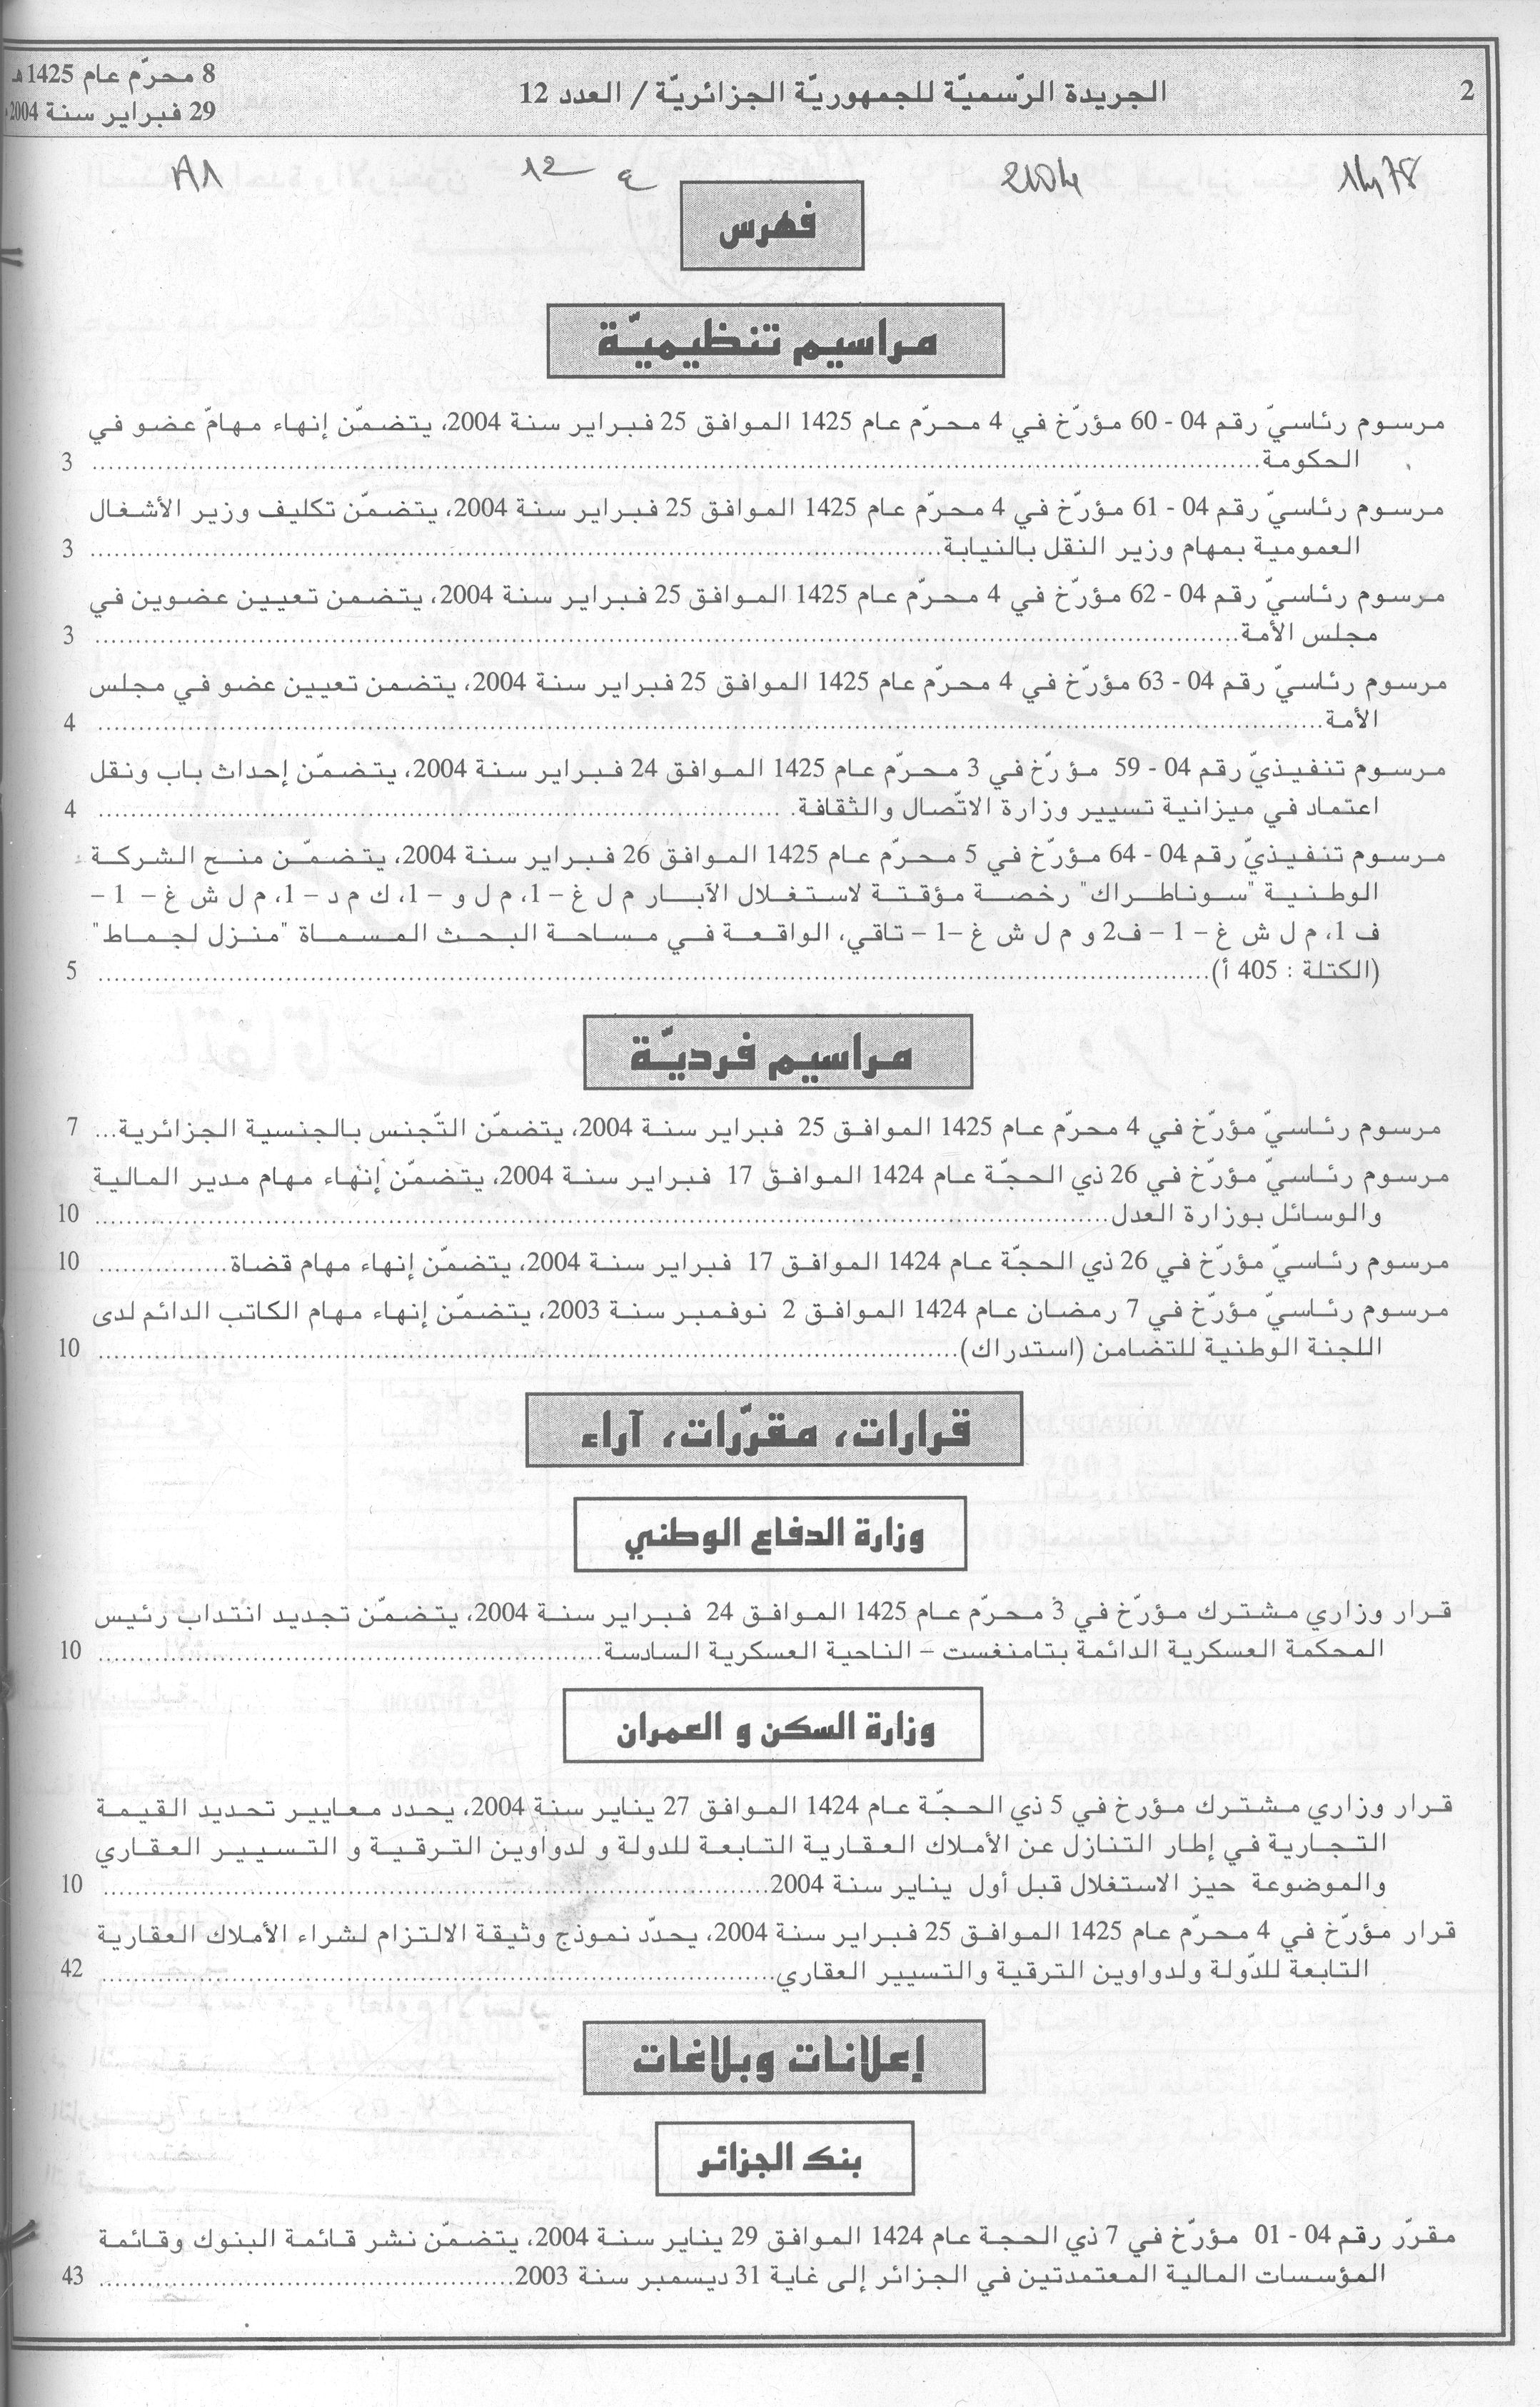 2
الجريدة الرّسميّة للجمهوريّة الجزائريّة / العدد 12
8 محرّم عام 1425 هـ
29 فبراير سنة 2004 م
A1
12
2004
1478
فهرس
مراسيم تنظيميّة
مرسوم رئاسيّ رقم 04 - 60 مؤرّخ في 4 محرّم عام 1425 الموافق 25 فبراير سنة 2004، يتضمّن إنهاء مهامّ عضو في
الحكومة........ 3
مرسوم رئاسيّ رقم 04 - 61 مؤرّخ في 4 محرّم عام 1425 الموافق 25 فبراير سنة 2004، يتضمّن تكليف وزير الأشغال
العمومية بمهام وزير النقل بالنيابة........ 3
مرسوم رئاسيّ رقم 04 - 62 مؤرّخ في 4 محرّم عام 1425 الموافق 25 فبراير سنة 2004، يتضمن تعيين عضوين في
مجلس الأمة........ 3
مرسوم رئاسيّ رقم 04 - 63 مؤرّخ في 4 محرّم عام 1425 الموافق 25 فبراير سنة 2004، يتضمن تعيين عضو في مجلس
الأمة........ 4
مرسوم تنفيذيّ رقم 04 - 59 مؤرّخ في 3 محرّم عام 1425 الموافق 24 فبراير سنة 2004، يتضمّن إحداث باب ونقل
اعتماد في ميزانية تسيير وزارة الاتّصال والثقافة. ........ 4
مرسوم تنفيذيّ رقم 04 - 64 مؤرّخ في 5 محرّم عام 1425 الموافق 26 فبراير سنة 2004، يتضمّن منح الشركة
الوطنية "سوناطراك" رخصة مؤقتة لاستغلال الآبار م ل غ - 1، م ل و - 1، ك م د - 1، م ل ش غ - 1 -
ف 1، م ل ش غ - 1 - ف2 و م ل ش غ -1 - تاقي، الواقعة في مساحة البحث المسماة "منزل لجماط"
(الكتلة : 405 أ)........ 5
مراسيم فرديّة
مرسوم رئاسيّ مؤرّخ في 4 محرّم عام 1425 الموافق 25 فبراير سنة 2004، يتضمّن التّجنس بالجنسية الجزائرية... 7
مرسوم رئاسيّ مؤرّخ في 26 ذي الحجّة عام 1424 الموافق 17 فبراير سنة 2004، يتضمّن إنهاء مهام مدير المالية
والوسائل بوزارة العدل........ 10
مرسوم رئاسيّ مؤرّخ في 26 ذي الحجّة عام 1424 الموافق 17 فبراير سنة 2004، يتضمّن إنهاء مهام قضاة........ 10
مرسوم رئاسيّ مؤرّخ في 7 رمضان عام 1424 الموافق 2 نوفمبر سنة 2003، يتضمّن إنهاء مهام الكاتب الدائم لدى
اللجنة الوطنية للتضامن (استدراك)........ 10
قرارات، مقرّرات، آراء
وزارة الدفاع الوطني
قرار وزاري مشترك مؤرّخ في 3 محرّم عام 1425 الموافق 24 فبراير سنة 2004، يتضمّن تجديد انتداب رئيس
المحكمة العسكرية الدائمة بتامنغست - الناحية العسكرية السادسة........ 10
وزارة السكن و العمران
قرار وزاري مشترك مؤرخ في 5 ذي الحجّة عام 1424 الموافق 27 يناير سنة 2004، يحدد معايير تحديد القيمة
التجارية في إطار التنازل عن الأملاك العقارية التابعة للدولة و لدواوين الترقية و التسيير العقاري
والموضوعة حيز الاستغلال قبل أول يناير سنة 2004........ 10
قرار مؤرّخ في 4 محرّم عام 1425 الموافق 25 فبراير سنة 2004، يحدّد نموذج وثيقة الالتزام لشراء الأملاك العقارية
التابعة للدّولة ولدواوين الترقية والتسيير العقاري........ 42
إعلانات وبلاغات
بنك الجزائر
مقرّر رقم 04 - 01 مؤرّخ في 7 ذي الحجة عام 1424 الموافق 29 يناير سنة 2004، يتضمّن نشر قائمة البنوك وقائمة
المؤسسات المالية المعتمدتين في الجزائر إلى غاية 31 ديسمبر سنة 2003........ 43